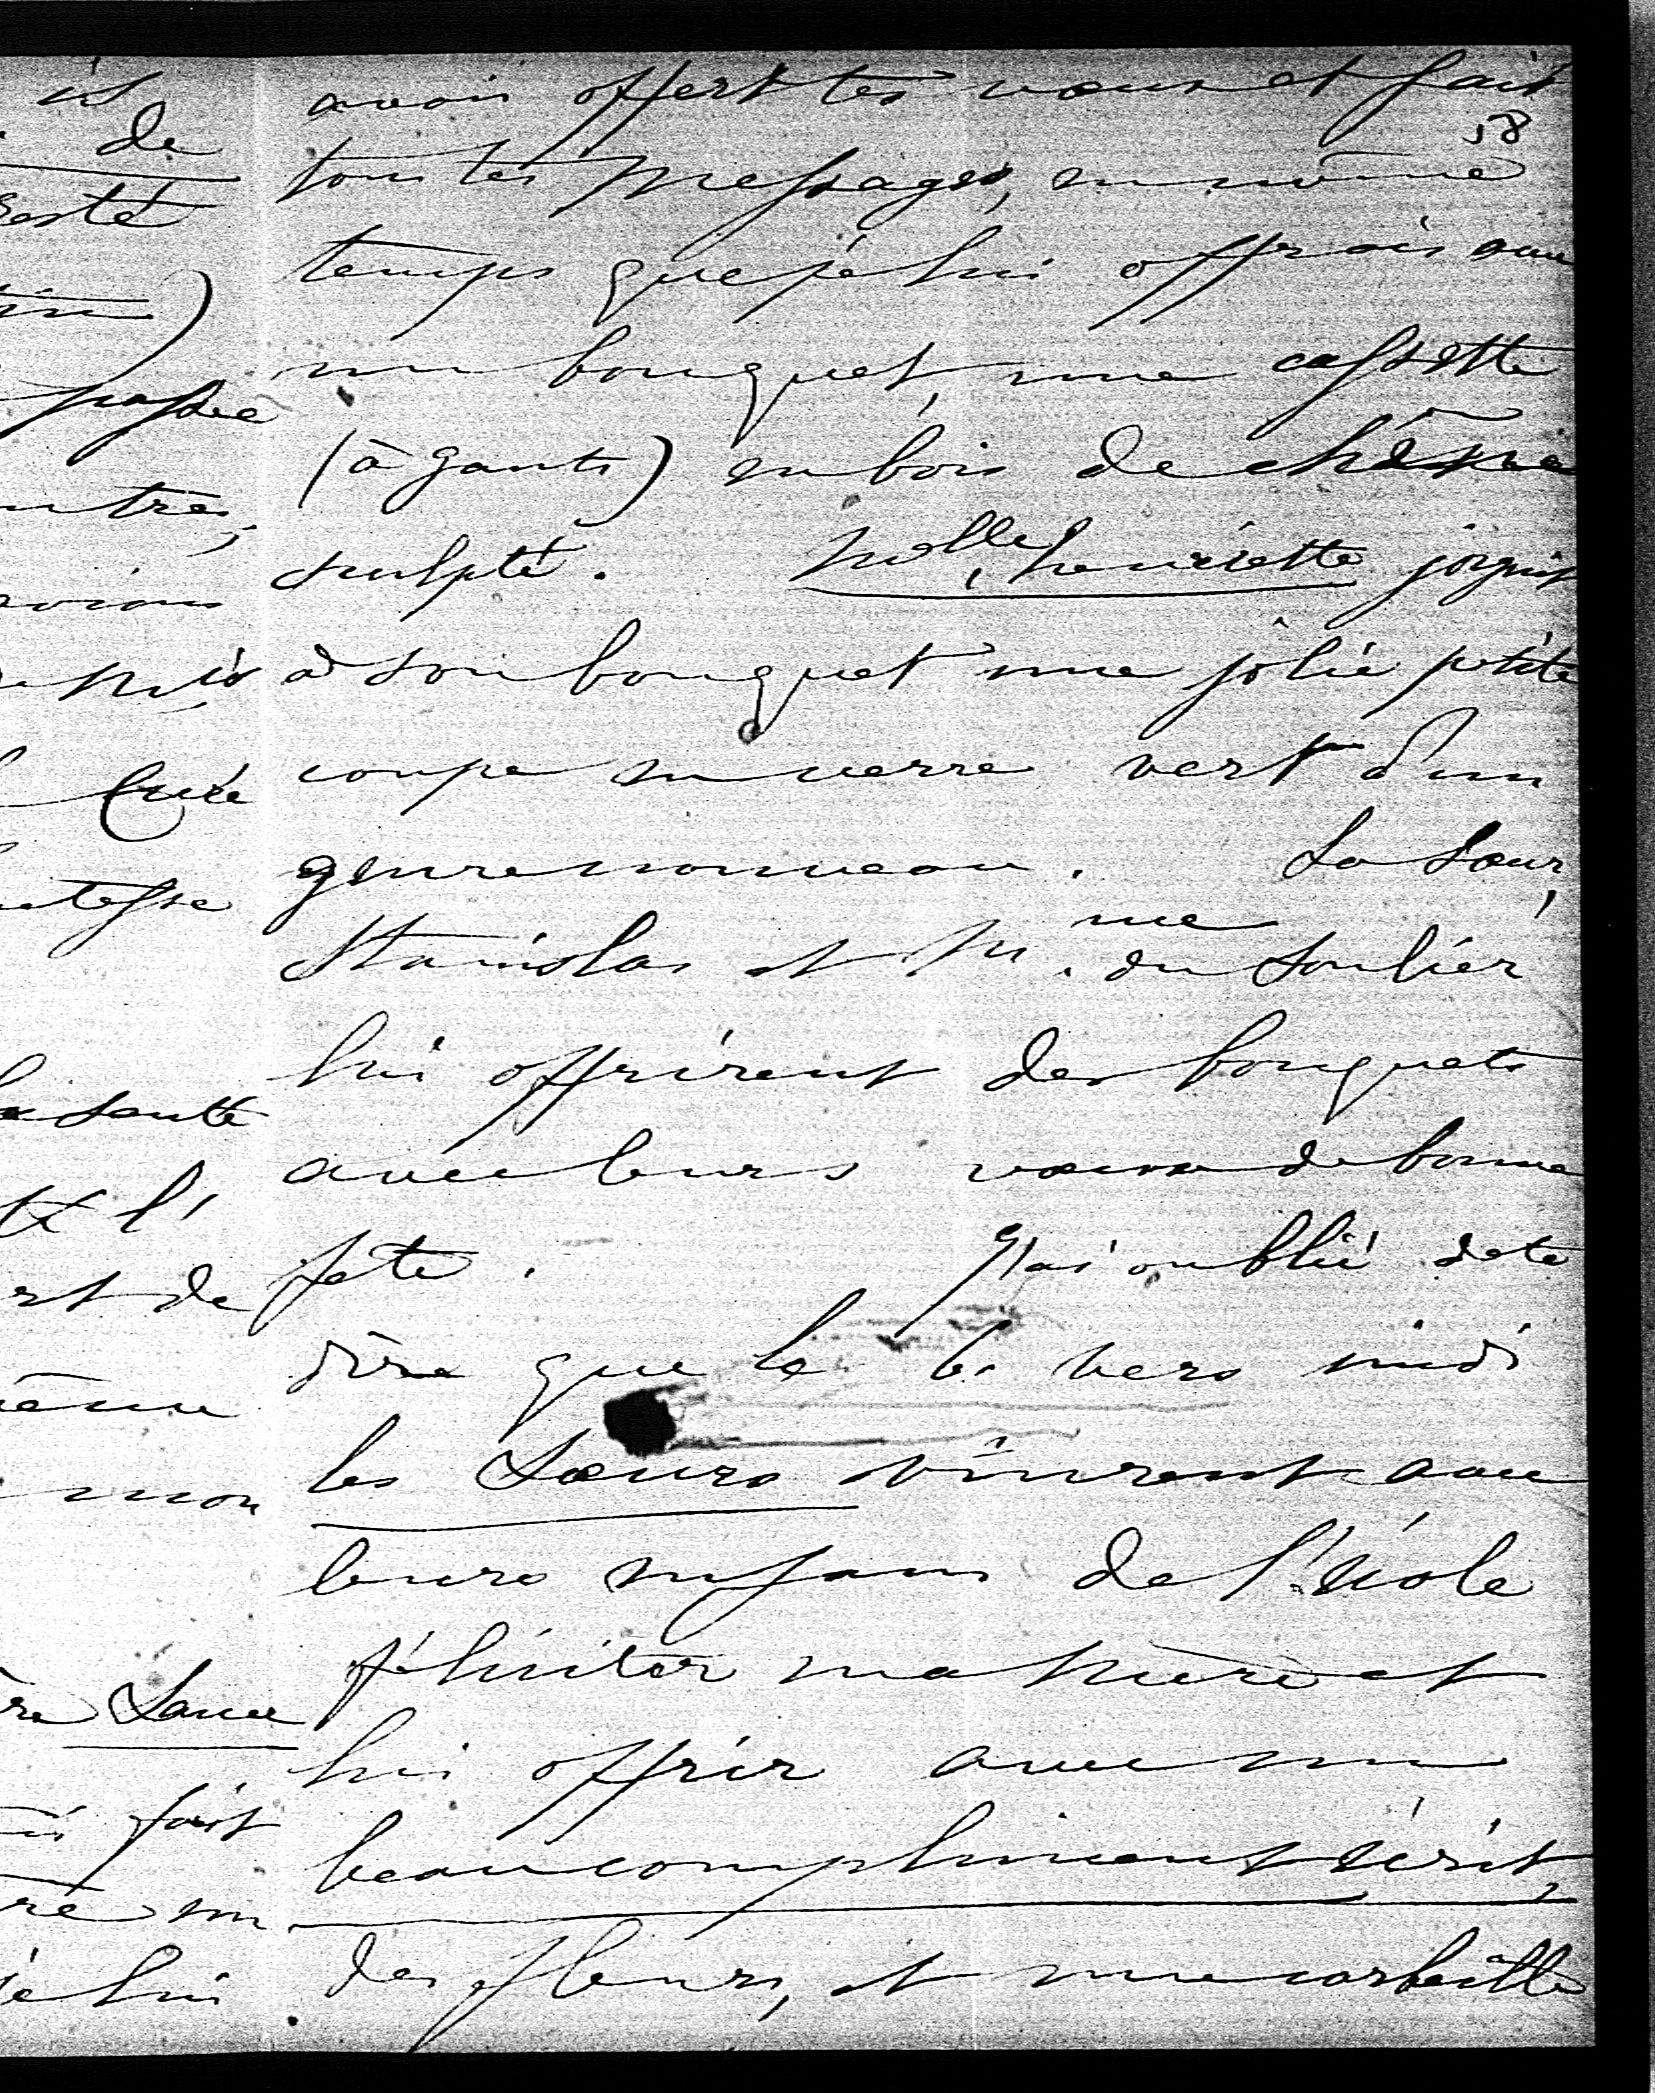 is
de
esté
passée
ntres,
avions
Curé
ntesse
la santé
et l'
rt de
même
mon
re Sauce
fait
ré un
je lui
avoir offert tes vœux et fait
58
tous tes messages, en même
temps que je lui offrais avec
un bouquet, une cassette
(à gants) en bois de chêne
sculpté. Melle henriette joignit
à son bouquet une jolie petite
coupe en verre vert d'un
genre nouveau. La Sœur,
Stanislas et Mme du Soulier
lui offrirent des bouquets
avec leurs vœux de bonne
fête. J'ai oublié de te
dire que le 6. vers midi
les Sœurs vinrent avec
leurs enfans de l'école
féliciter ma mère et
lui offrir avec un
beau compliment écrit,
des fleurs, et une corbeille